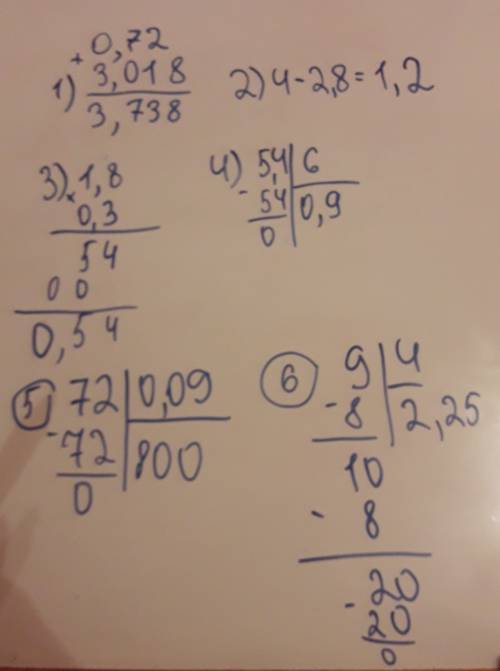 1) + 0,72
3,018
3,738
2) 4 - 2,8 = 1,2
3) × 1,8
0,3
54
00
0,54
4) 5,4 | 6
- 54 | 0,9
0
5 72 | 0,09
- 72 | 800
0
6 9 | 4
- 8 | 2,25
10
- 8
- 20
20
0